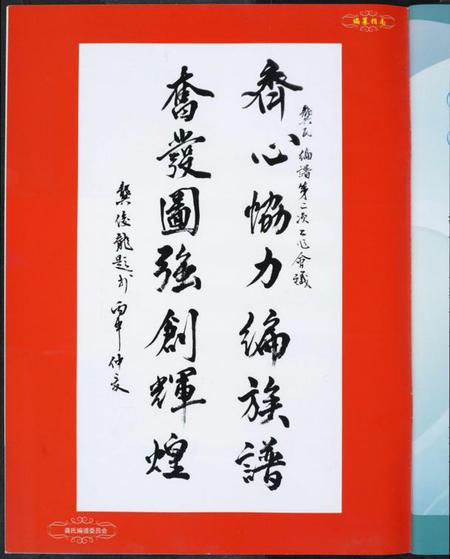 编纂指南
齊心協力編族譜
龔氏編譜第二次工作會議
奮發圖強創輝煌
龔俊龍題於丙年仲夏
龚氏编谱委员会